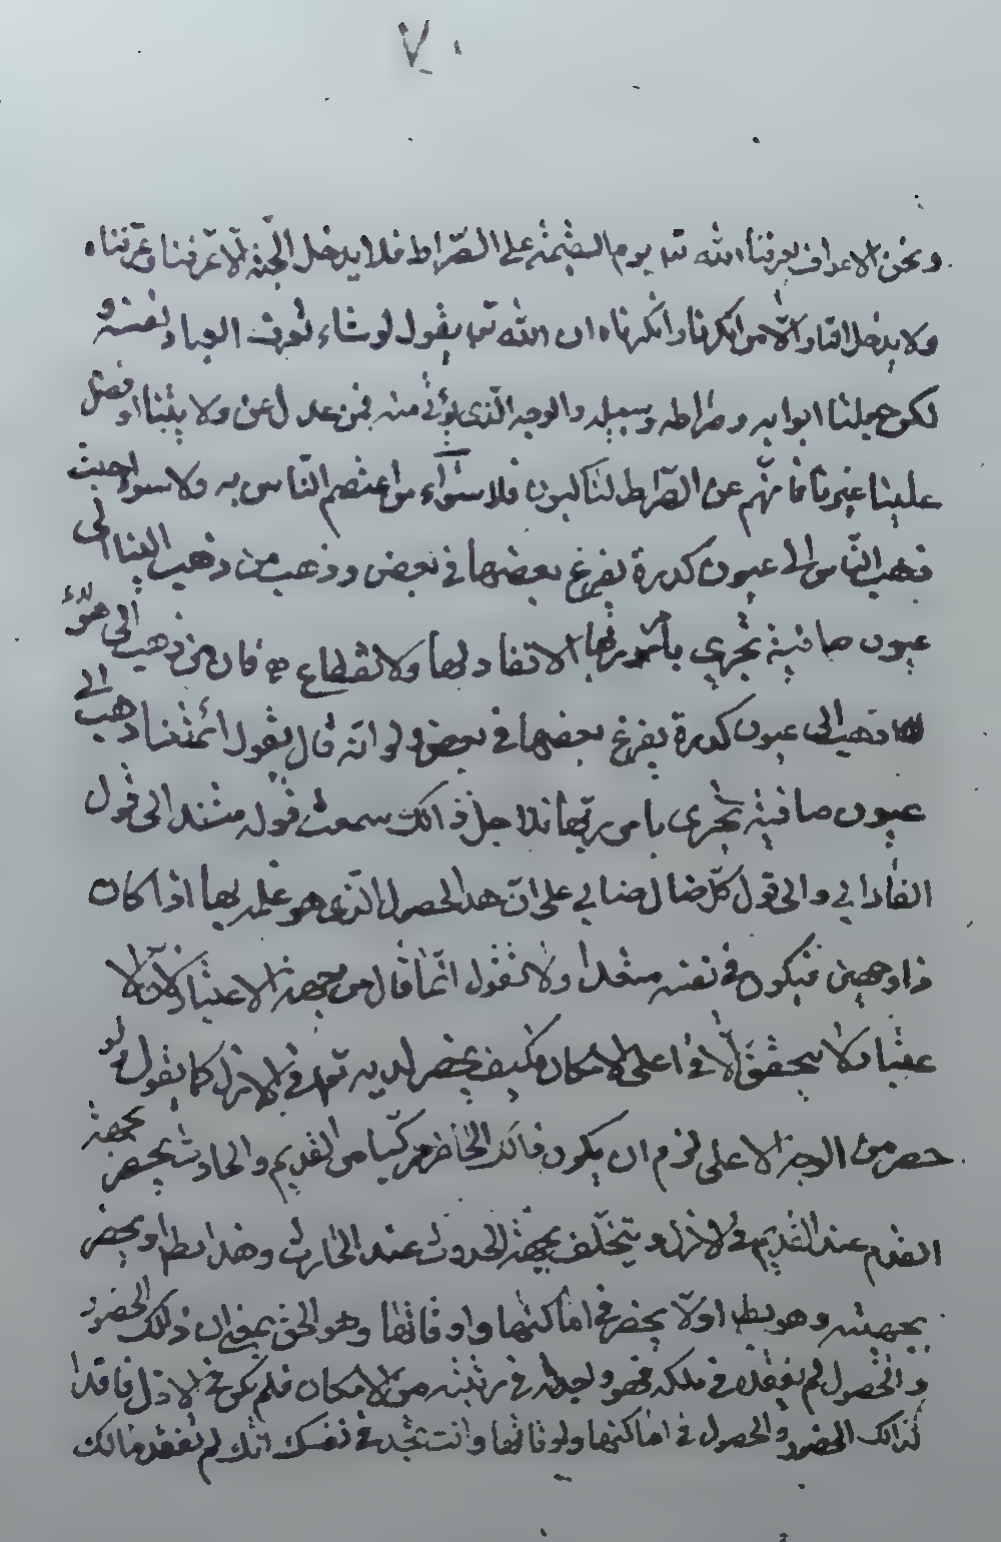 ٧٠
ونحن الاعراف يعرفنا الله تع يوم القيمة على الصراط فلا يدخل الجنة الا من عرفنا وعرفناه
ولا يدخل النار الا من انكرنا وانكرناه ان الله تع يقول لو شاء لعرف العباد نفسه و
لكن جعلنا ابوابه وصراطه وسبيله والوجه الذي يؤتى منه فمن عدل عن ولايتنا او فضل
علينا غيرنا فانهم عن الصراط لناكبون فلا سواء من اعتصم الناس به ولا سواء حيث
ذهب الناس الى عيون كدرة يفرغ بعضها في بعض وذهب من ذهب الينا الى
عيون صافية تجري بأمر ربها لا نفاد لها ولا انقطاع فان من ذهب الى هؤلاء
ذهب الى عيون كدرة يفرغ بعضها في بعض ولو انه قال بقول ائمتنا ذهب الى
عيون صافية تجري بامر ربها فلاجل ذالك سمعت قوله مستند الى قول
الفارابي والى قول كل ضال لضابي على ان هذا الحصول الذي هو علمه بها اذا كان
ذا وجهين فيكون في نفسه متعددا ولا نقول انما قال من جهة الاعتبار لان الا
عتبار لا يتحقق الا في اعلى الامكان فكيف يحضر لديه تع في الازل كما يقول ولو
حصر من الوجه الاعلى لزم ان يكون ذالك الحاضر مركبا من القديم والحادث يحضر بجهة
القدم عند القديم في الازل ويتخلف بجهة الحدوث عند الحادث وهذا بط او يحضر
بجهتيه وهو بط اولا يحضر في اماكنها واوقاتها وهو الحق بمعنى ان ذلك الحضور
والحصول لم يفقده في ملكه فهو واجد له في رتبته من الامكان فلم يكن في الازل فاقدا
لذالك الحضور والحصول في اماكنها واوقاتها وانت تجد في نفسك انك لم تفقد مالك